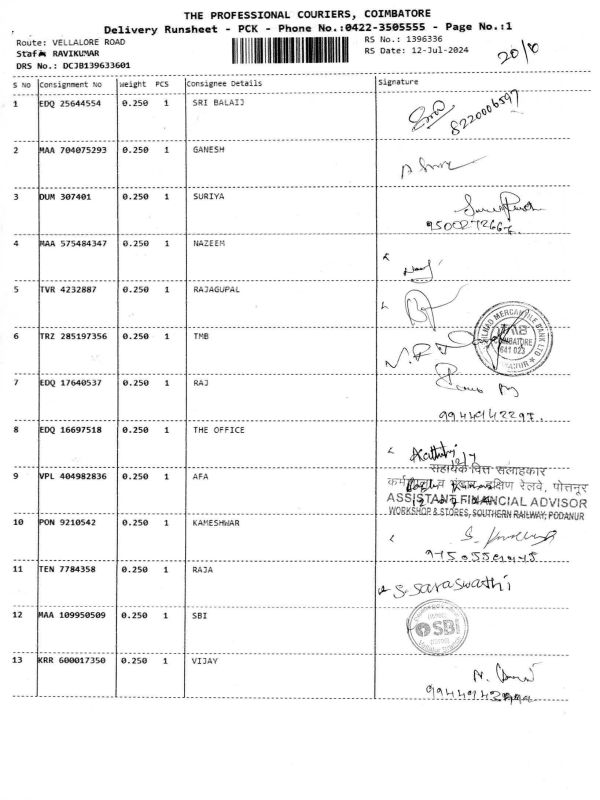 THE PROFESSIONAL COURIERS, COIMBATORE
Delivery Runsheet - PCK - Phone No.:0422-3505555 - Page No.:1
Route: VELLALORE ROAD
RS No.: 1396336
Staff RAVIKUMAR
RS Date: 12-Jul-2024
20/8
DRS No.: DCJB139633601
S No Consignment No Weight PCS Consignee Details Signature
1 EDQ 25644554 0.250 1 SRI BALAIJ
8220006597
2 MAA 704075293 0.250 1 GANESH
3 DUM 307401 0.250 1 SURIYA
9500272667.
4 MAA 575484347 0.250 1 NAZEEM
5 TVR 4232887 0.250 1 RAJAGUPAL
TAMILNAD MERCANTILE BANK LTD
COIMBATORE
641 023
6 TRZ 285197356 0.250 1 TMB
7 EDQ 17640537 0.250 1 RAJ
9944914229.
8 EDQ 16697518 0.250 1 THE OFFICE
12/7
सहायक वित्त सलाहकार
9 VPL 404982836 0.250 1 AFA
दक्षिण रेलवे, पोत्तनूर
ASSISTANT FINANCIAL ADVISOR
WORKSHOP & STORES, SOUTHERN RAILWAY, PODANUR
10 PON 9210542 0.250 1 KAMESHWAR
11 TEN 7784358 0.250 1 RAJA
S. Saraswathi
12 MAA 109950509 0.250 1 SBI
SBI
13 KRR 600017350 0.250 1 VIJAY